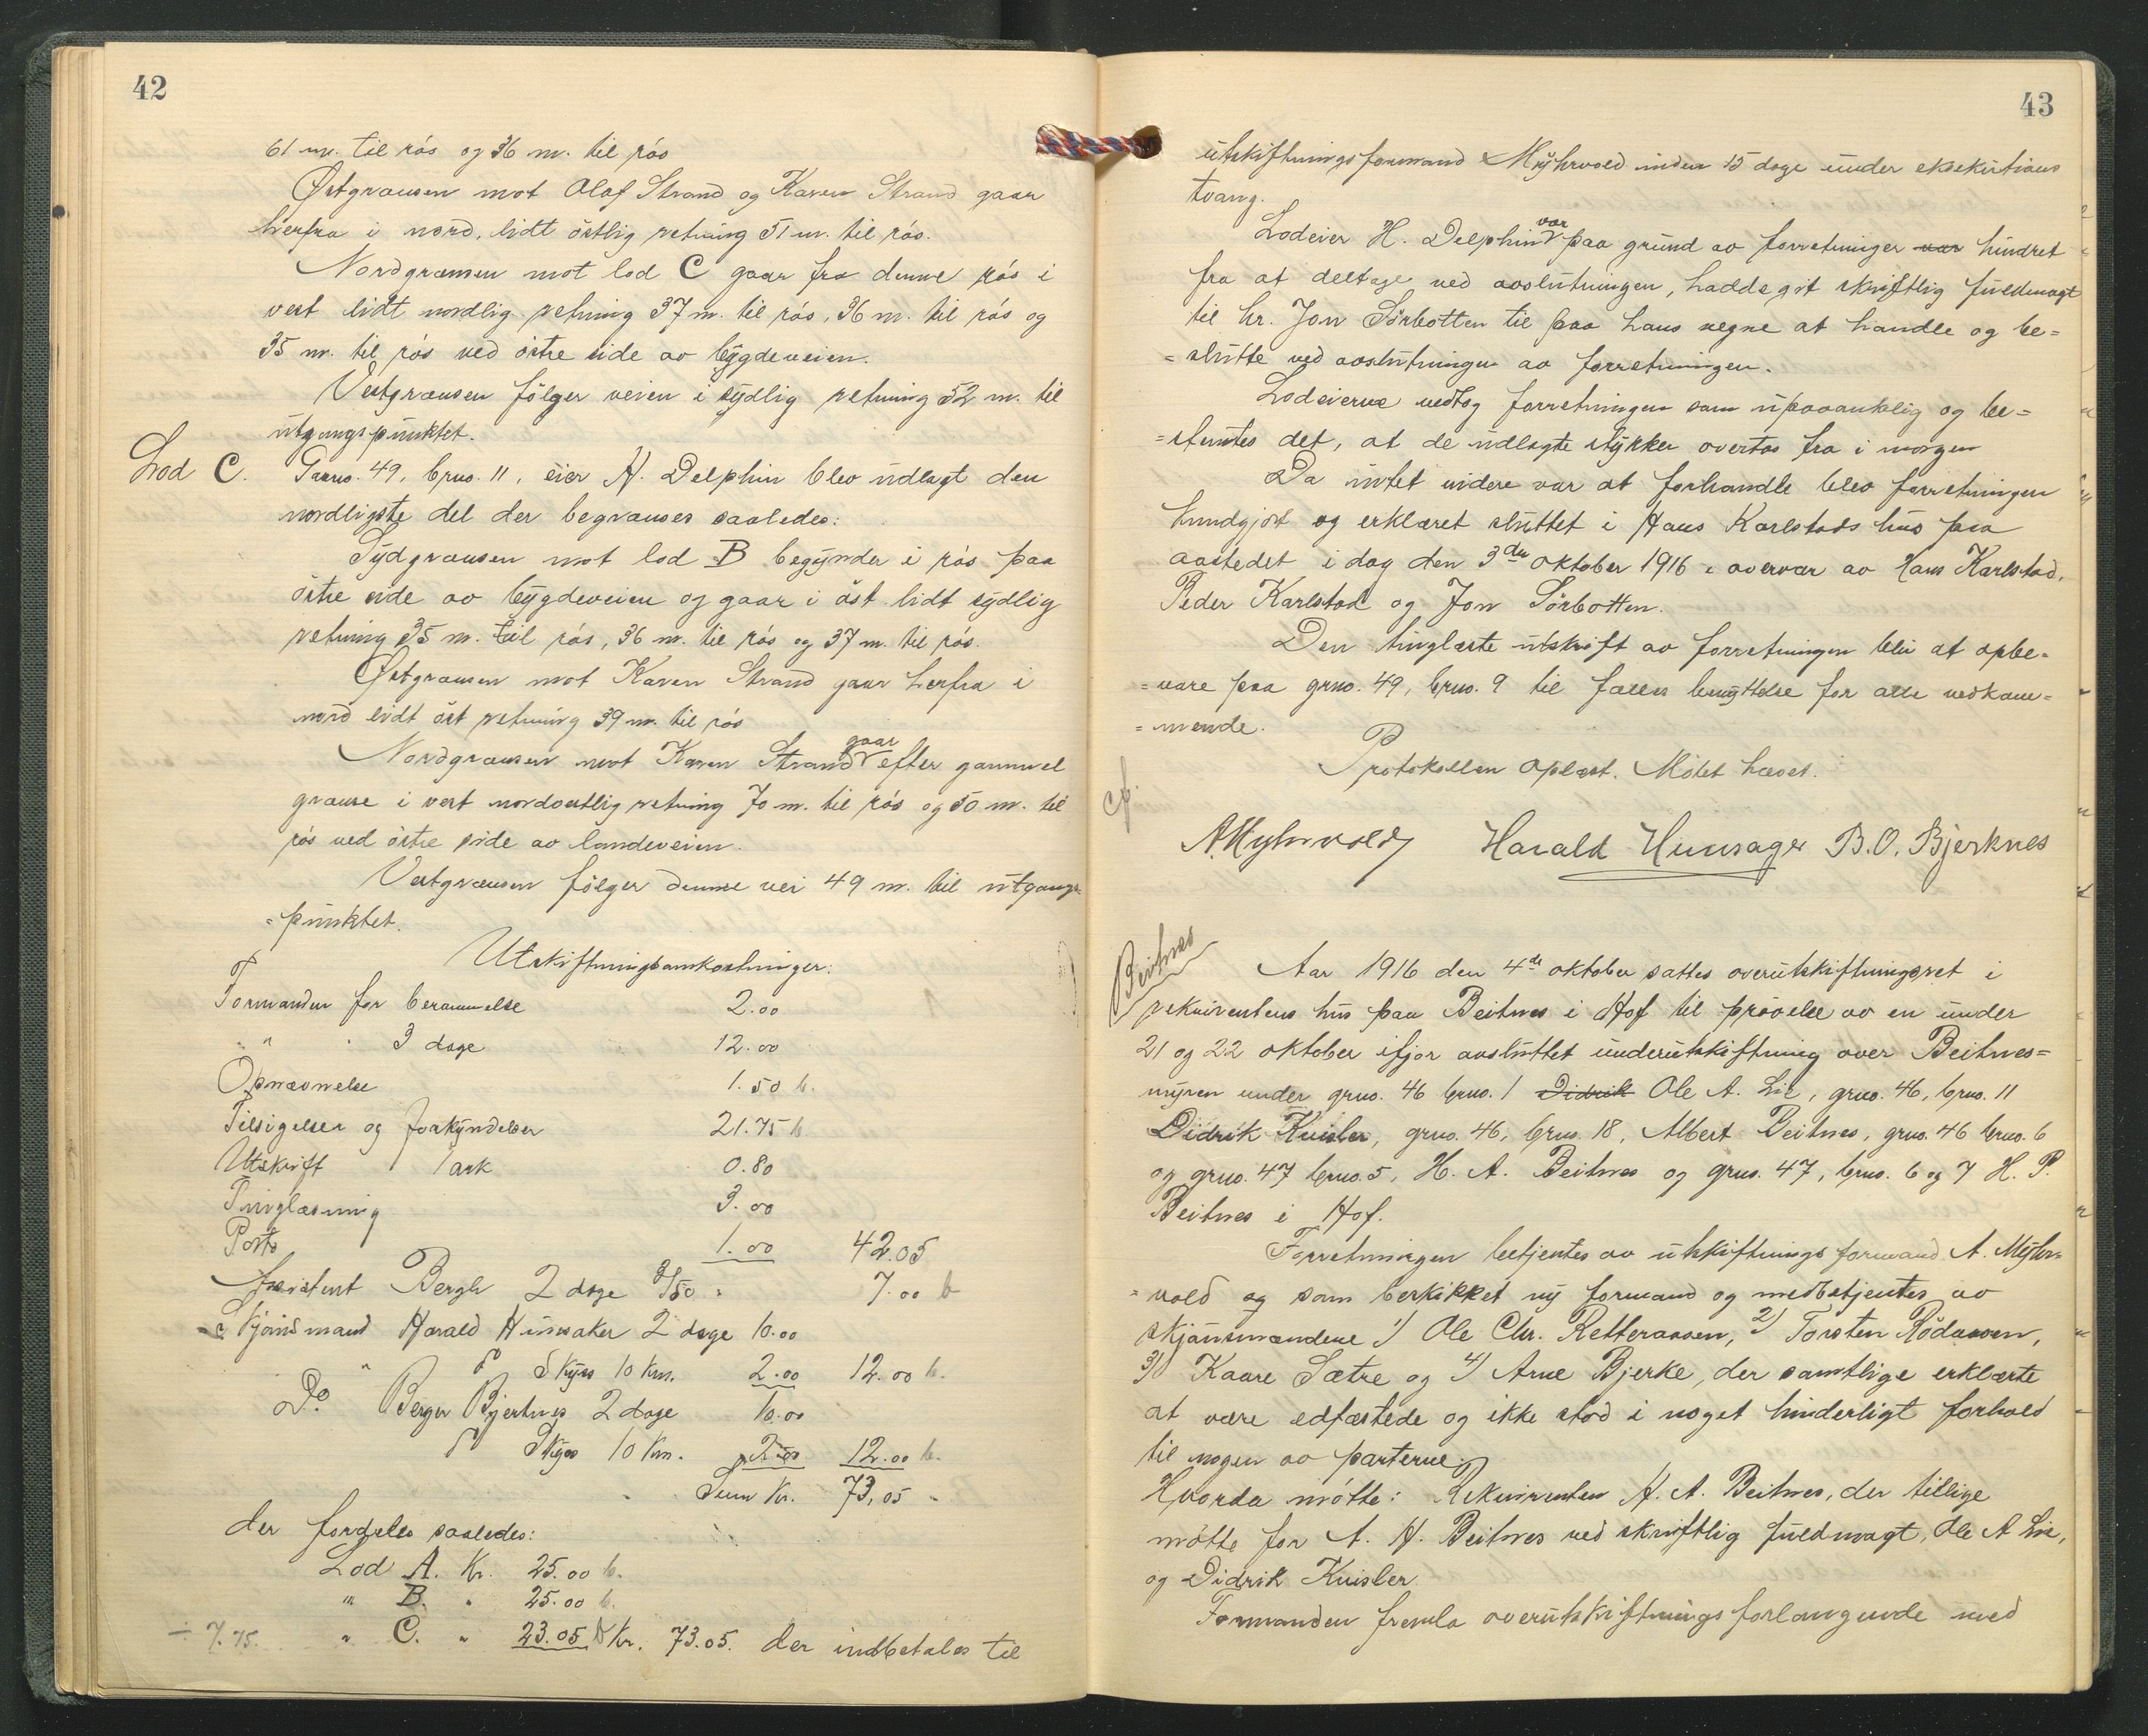 42
61 m. til rös og 36 m. til rös
Østgrænsen mot Olaf Strand og Karen Strand gaar
herfra i nord, lidt östlig retning 51 m. til rös.
Nordgrænsen mot lod C gaar fra denne rös i
vest lidt nordlig retning 37 m. til rös, 36 m. til rös og
35 m. til rös ved östre side av bygdeveien.
Vestgrænsen fölger veien i sydlig retning 52 m. til
utgangspunktet.
Lod C. Gaarno. 49, brno. 11, eier H. Delphin blev utlagt den
nordligste del der begrænses saaledes:
Sydgrænsen mot lod B begynder i rös paa
östre side av bygdeveien og gaar i öst lidt sydlig
retning 35 m. til rös, 36 m. til rös og 37 m. til rös.
Østgrænsen mot Karen Strand gaar herfra i
nord lidt öst retning 39 m. til rös
Nordgrænsen mot Karen Strand gaar efter gammel
grænse i vest nordvestlig retning 70 m. til rös og 50 m. til
rös ved östre side av landeveien.
Vestgrænsen fölger denne vei 49 m. til utgangs-
=punktet.
Utskiftningsomkostninger:
Formanden for berammelse 2.00
" " 3 dage 12.00
Opnævnelse 1.50 b.
Tilsigelser og forkyndelser 21.75 b.
Utskrift 1 ark 0.80
Tinglæsning 3.00
Porto 1.00 42.05
Assistent Bergh 2 dage 3/50 " 7.00 b
Skjönsmand Harald Hunsaker 2 dage 10.00
" Skyss 10 km. 2.00 12.00 b.
Do. Berger Bjerknes 2 dage 10.00
Skyss 10 km. 2.00 12.00 b.
Sum Kr. 73,05
der fordeles saaledes:
Lod A. Kr. 25.00 b.
" B. " 25.00 b.
÷ 7.75. " C. " 23.05 b Kr. 73.05. der indbetales til
43
utskiftningsformand Myhrvold inden 15 dage under eksekutions
tvang.
Lodeier H. Delphin var paa grund av forretninger var hindret
fra at deltage ved avslutningen, hadde git skriftlig fuldmagt
til hr. Jon Sörbotten til paa hans vegne at handle og be=
=slutte ved avslutningen av forretningen.
Lodeierne vedtog forretningen som upaaanklig og be=
=stemtes det, at de utlagte stykker overtas fra i morgen
Da intet videre var at forhandle blev forretningen
kundgjort og erklæret sluttet i Hans Karlstads hus paa
aastedet i dag den 3die oktober 1916 i overvær av Hans Karlstad,
Peder Karlstad og Jon Sörbotten.
Den tinglæste utskrift av forretningen blir at opbe=
=vare paa grno. 49, brno. 9 til fælles benyttelse for alle vedkom=
=mende.
Protokollen oplæst. Mötet hævet.
cf.
A. Myhrvold Harald Hunsager B. O. Bjerknes
Beitnes
Aar 1916 den 4de oktober sattes overutskiftningsret i
rekvirentens hus paa Beitnes i Hof til prövelse av en under
21 og 22 oktober ifjor avsluttet underutskiftning over Beitnes=
myren under grno. 46 brno. 1 Didrik Ole A. Lie, grno. 46, brno. 11
Didrik Kvisler, grno. 46, brno. 18, Albert Beitnes, grno. 46 brno. 6
og grno. 47 brno. 5, H. A. Beitnes og grno. 47, brno. 6 og 7 H. P.
Beitnes i Hof.
Forretningen betjentes av utskiftningsformand A. Myhr=
=vold og som beskikket ny formand og medbetjentes av
skjönsmændene 1) Ole Chr. Retteraasen, 2) Torsten Rödaasen,
3) Kaare Sætre og 4) Arne Bjerke, der samtlige erklærte
at være edfæstede og ikke stod i noget hinderligt forhold
til nogen av parterne.
Hvorda mötte: Rekvirenten H. A. Beitnes, der tillige
mötte for A. H. Beitnes ved skriftlig fuldmagt, Ole A Lie,
og Didrik Kvisler
Formanden fremla overutskiftningsforlangende med